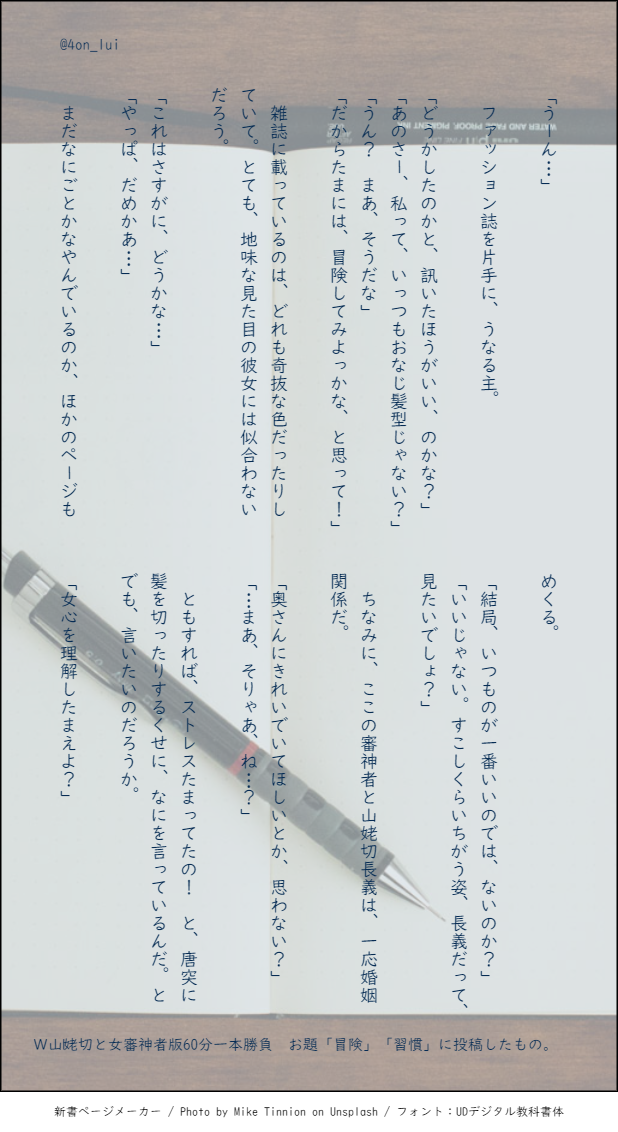 @4on_lui
「うーん…」
ファッション誌を片手に、うなる主。
「どうかしたのかと、訊いたほうがいい、のかな？」
「あのさー、私って、いっつもおなじ髪型じゃない？」
「うん？　まあ、そうだな」
「だからたまには、冒険してみよっかな、と思って！」
雑誌に載っているのは、どれも奇抜な色だったりし
ていて。とても、地味な見た目の彼女には似合わない
だろう。
「これはさすがに、どうかな…」
「やっぱ、だめかあ…」
まだなにごとかなやんでいるのか、ほかのページも
めくる。
「結局、いつものが一番いいのでは、ないのか？」
「いいじゃない。すこしくらいちがう姿、長義だって、
見たいでしょ？」
ちなみに、ここの審神者と山姥切長義は、一応婚姻
関係だ。
「奥さんにきれいでいてほしいとか、思わない？」
「…まあ、そりゃあ、ね…？」
ともすれば、ストレスたまってたの！　と、唐突に
髪を切ったりするくせに、なにを言っているんだ。と
でも、言いたいのだろうか。
「女心を理解したまえよ？」
WATER AND FADE PROOF, PIGMENT INK
W山姥切と女審神者版60分一本勝負　お題「冒険」「習慣」に投稿したもの。
新書ページメーカー / Photo by Mike Tinnion on Unsplash / フォント：UDデジタル教科書体